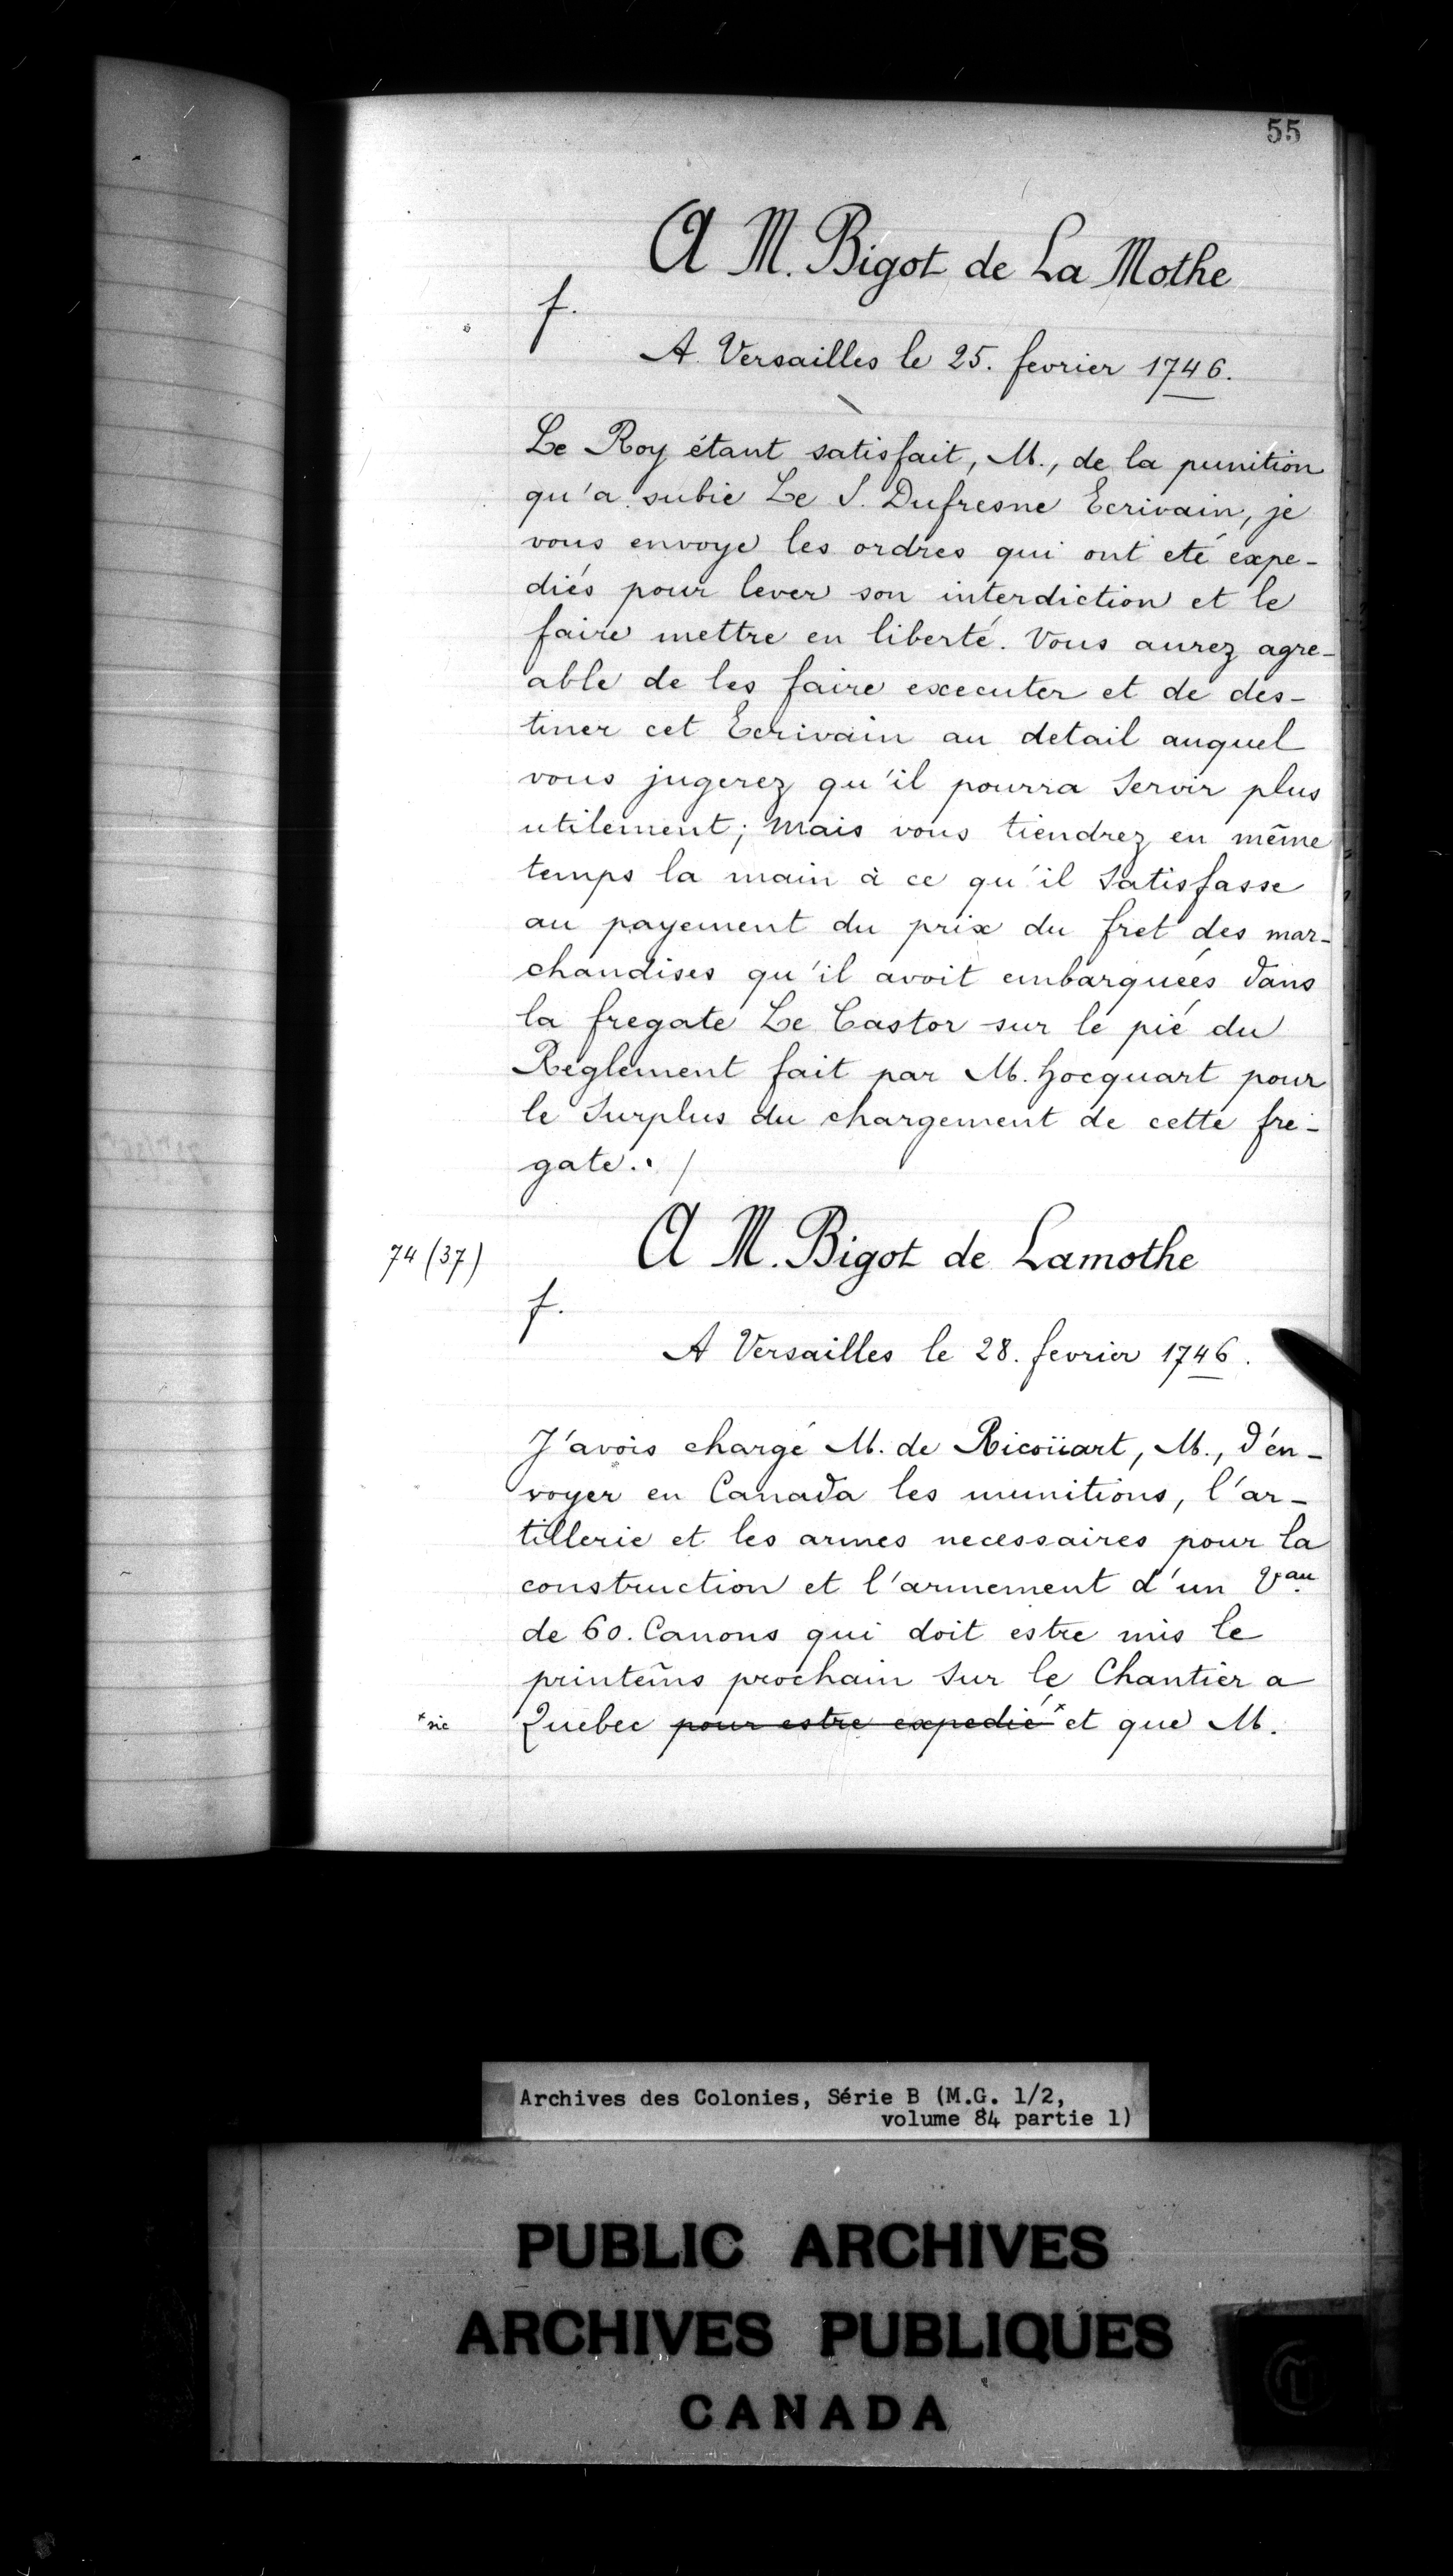 55
A M. Bigot de La Mothe
f.
A Versailles le 25. fevrier 1746.
Le Roy étant satisfait, M., de la punition
qu'a subie Le S. Dufresne Ecrivain, je
vous envoye les ordres qui ont eté expe-
diés pour lever son interdiction et le
faire mettre en liberté. Vous aurez agre-
able de les faire executer et de des-
tiner cet Ecrivain au detail auquel
vous jugerez qu'il pourra servir plus
utilement; Mais vous tiendrez en même
temps la main à ce qu'il satisfasse
au payement du prix du fret des mar-
chandises qu'il avoit embarquées dans
la fregate Le Castor sur le pié du
Reglement fait par M. Hocquart pour
le surplus du chargement de cette fre-
gate. /
74 (37)
A M. Bigot de Lamothe
f.
A Versailles le 28. fevrier 1746.
J'avois chargé M. de Ricoüart, M., d'en-
voyer en Canada les munitions, l'ar-
tillerie et les armes necessaires pour la
construction et l'armement d'un Vau
de 60. Canons qui doit estre mis le
printems prochain sur le Chantier a
*sic Quebec pour estre expedié* et que M.
Archives des Colonies, Série B (M.G. 1/2,
volume 84 partie 1)
PUBLIC ARCHIVES
ARCHIVES PUBLIQUES
CANADA